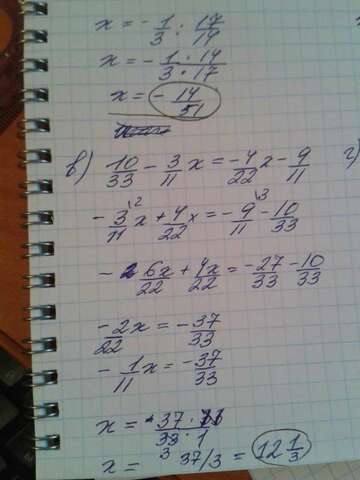 x = - 1/3 : 17/14
x = - 1·14/3·17
x = - 14/51
в) 10/33 - 3/11 x = -4/22 x - 9/11 г)
- 3/11 \2 x + 4/22 x = - 9/11 \3 - 10/33
- 6x/22 + 4x/22 = -27/33 - 10/33
- 2x/22 = - 37/33
- 1/11 x = -37/33
x = -37·11/33·1 3
x = 37/3 = 12 1/3